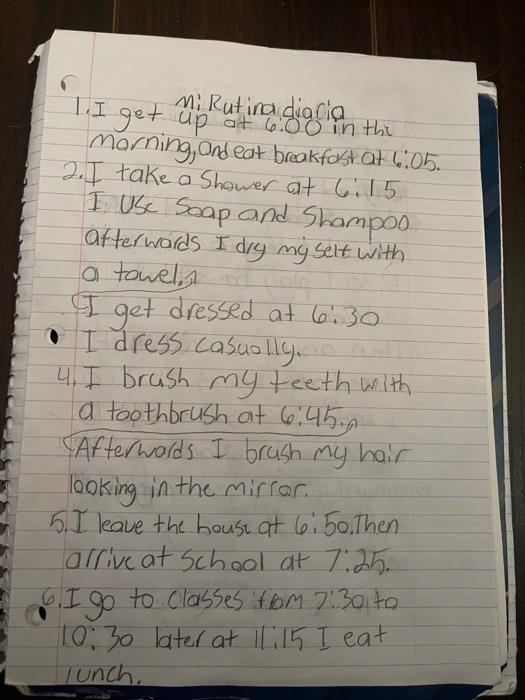 Mi Rutina diaria
1. I get up at 6:00 in the
morning, and eat breakfast at 6:05.
2. I take a Shower at 6:15
I Use Soap and Shampoo
afterwards I dry my self with
a towel.
I get dressed at 6:30
I dress casually.
4. I brush my teeth with
a toothbrush at 6:45.
Afterwards I brush my hair
looking in the mirror.
5. I leave the house at 6:50. Then
arrive at School at 7:25.
6. I go to classes from 7:30 to
10:30 later at 11:15 I eat
lunch.